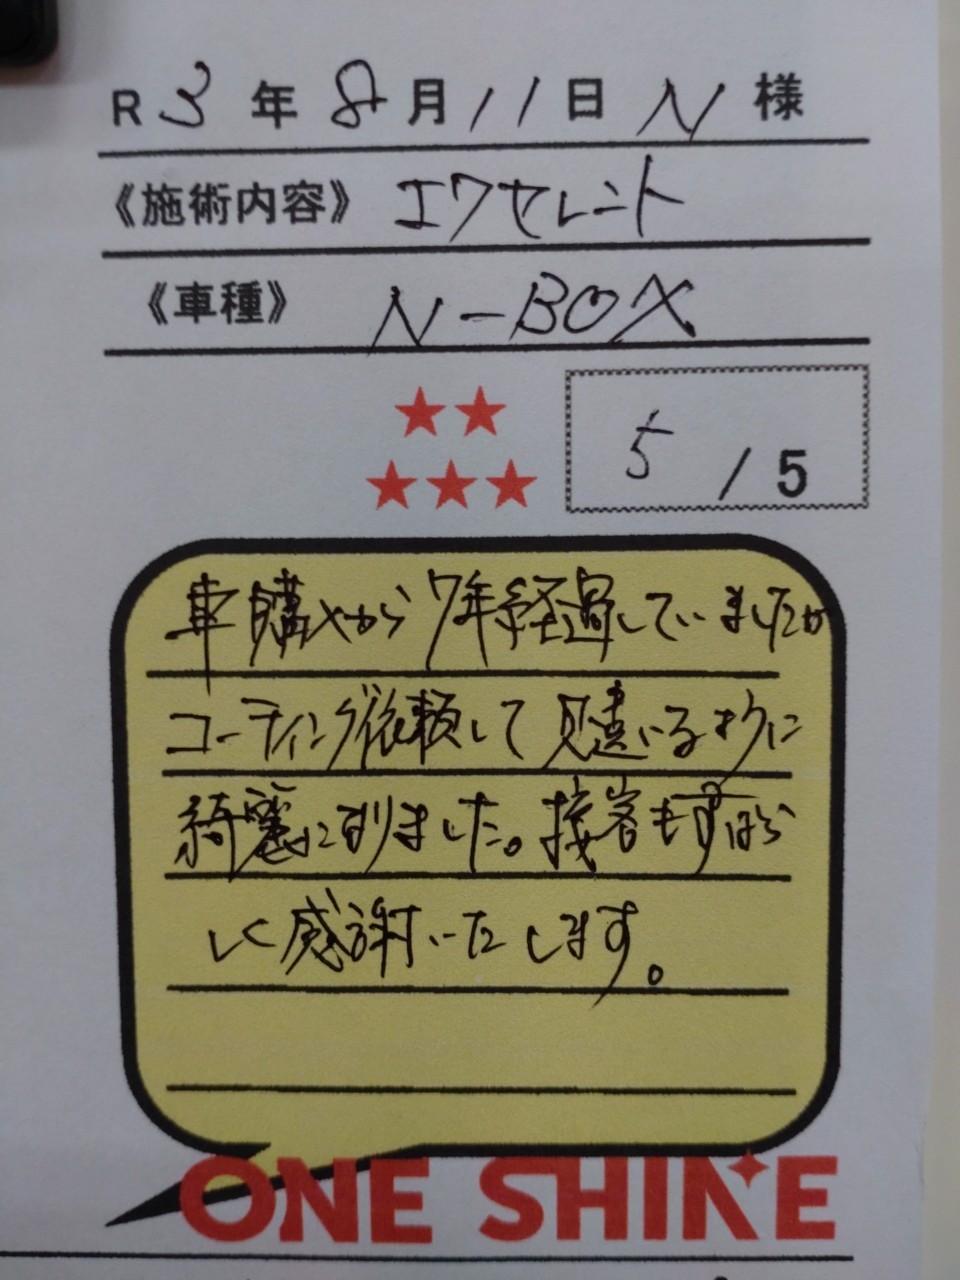 R3年8月11日 N 様
《施術内容》 エクセレント
《車種》 N-BOX
5 / 5
車購入から7年経過していましたが
コーティング依頼して見違いるように
綺麗になりました。接客もすばら
しく感謝いたします。
ONE SHINE